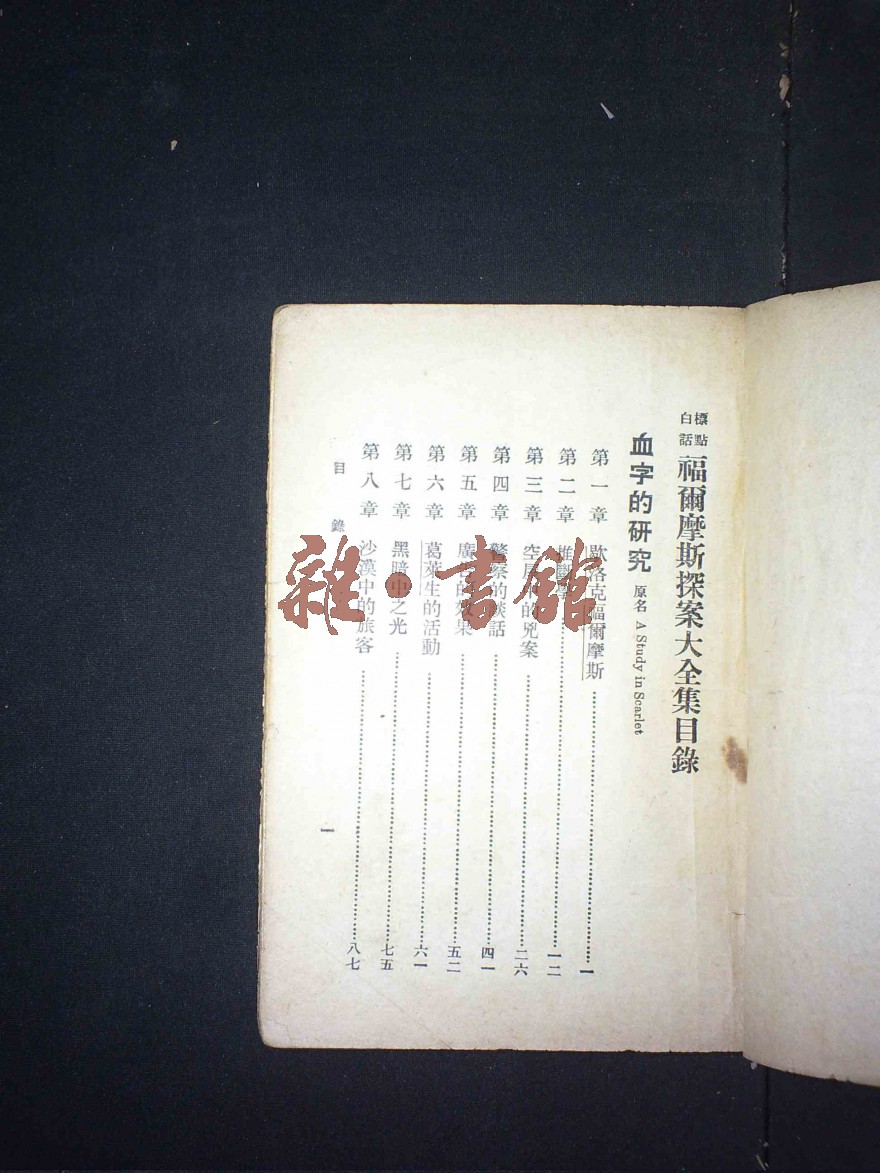 標點白話 福爾摩斯探案大全集目錄
血字的研究 原名 A Study in Scarlet
第一章 歇洛克福爾摩斯 一
第二章 推斷 一二
第三章 空屋中的兇案 二六
第四章 警察的談話 四一
第五章 廣告的效果 五二
第六章 葛萊生的活動 六一
第七章 黑暗中之光 七五
第八章 沙漠中的旅客 八七
目錄
一
雜·書館